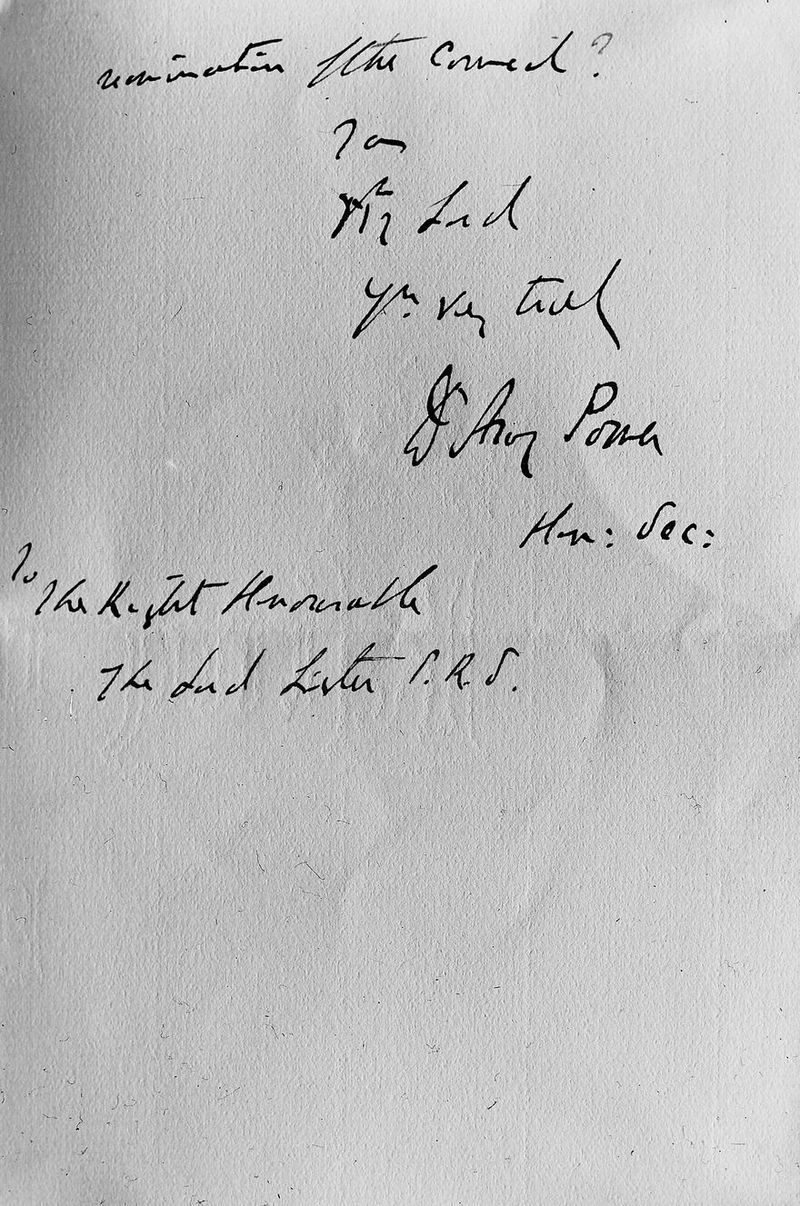 nomination of the Council?
I am
My Lord
Yrs. very truly
D'Arcy Power
Hon: Sec:
To
The Right Honourable
The Lord Lister P.R.S.